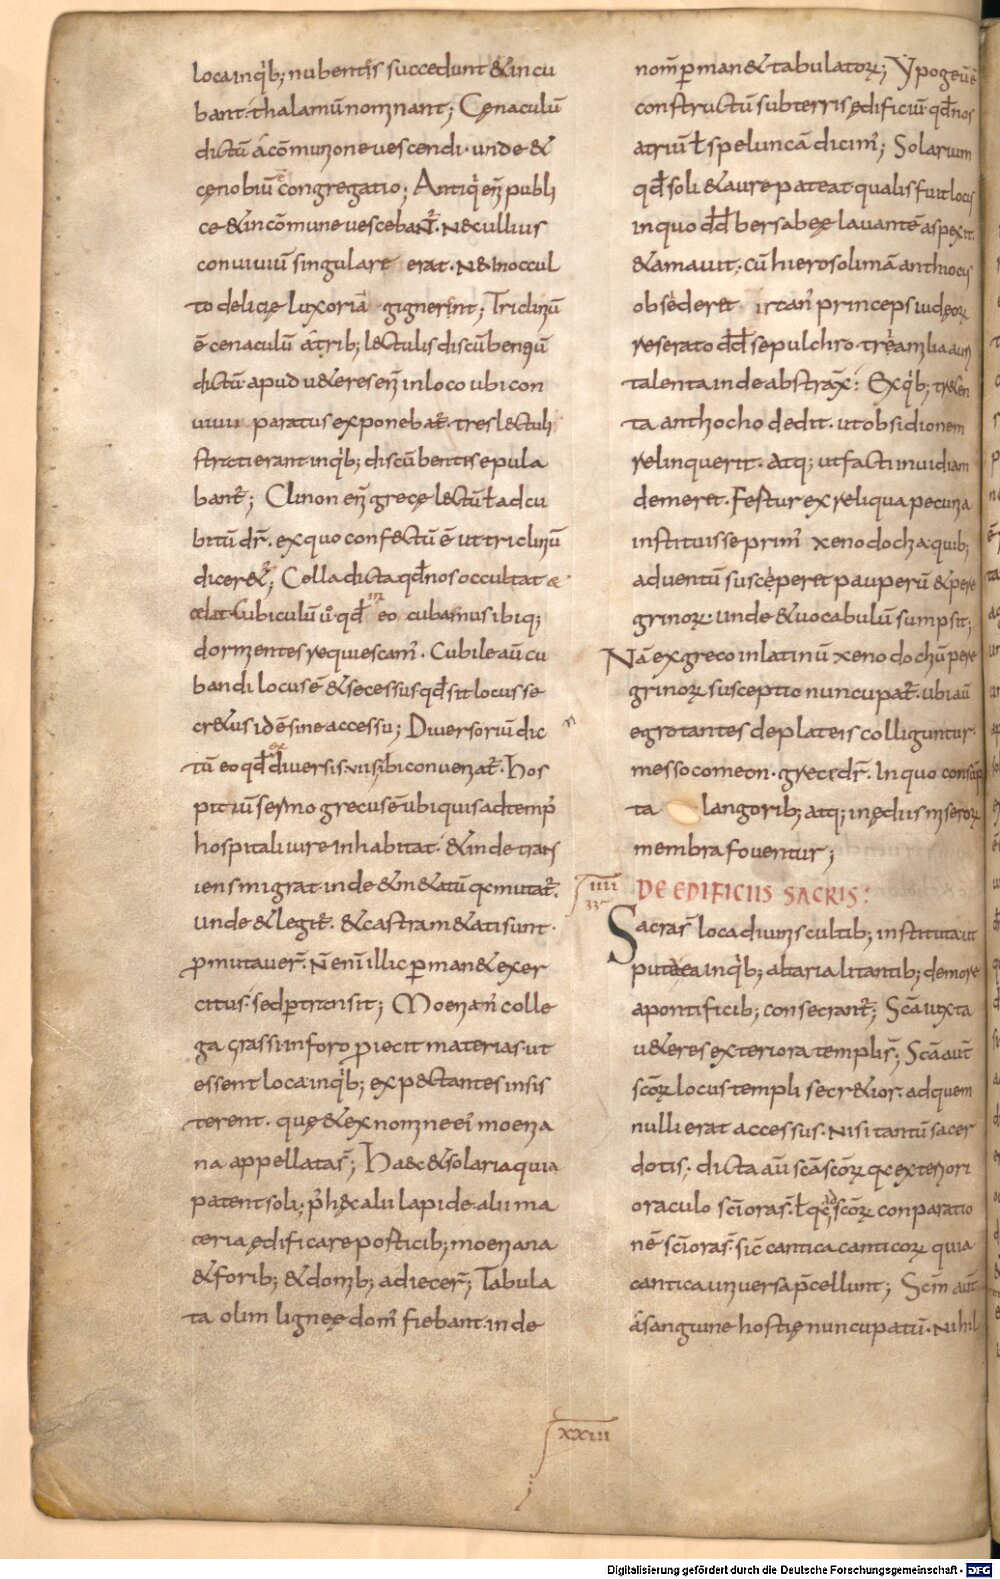 loca inqꝰb; nubentis succedunt & incu
bant thalamū nominant; Cęnaculū
dictū a cōmunione vescendi · unde &
cęnobiū congregatio; Antiqi eni publi
ce & in cōmune vescebant̄ · N& ullius
conuiuiū singulare erat · N& in occul
to delicię luxoriā gignerint; Triclinū
ē cenaculū a trib; lectulis discūbentiū
dictū apud u&eres enī in loco ubi con
uiuii paratus exponebat̄ · tres lectuli
stricti erant inqib; discūbentes epula
bant̄; Clinon enī gręcę lectū ł adcu
bitū dr̄ · ex quo confectū ē ut triclinū
dicer&̄; Cella dicta qđ nos occultat &
celat Cubiculū ū · qđ in eo cubamus ibiq;
dormientes requiescam̄ · Cubile aū cu
bandi locus ē & secessus qđ sit locus se
cr&us id ē sine accessu; Diversoriū dic
tū eo qđ ex diversis viis ibi conveniat̄ · Hos
pitiū sermo grecus ē ubi quis ad temp̄
hospitali iure inhabitat · & inde trans
iens migrat inde & m&atū qc mutat̄ ·
unde & legit̄ · & castra m&ati sunt ·
ꝓmutaver̄ · N̄ enī illic ꝑman& exer
citus · sed ꝑtransit; Moeniani colle
ga crassi in foro ꝓiecit materias ut
essent loca inqib; expectantes insis
terent · quę & ex nomine ei moenia
na appellata s̄; Haec & solaria quia
patent soli; p̄ hęc alii lapide alii ma
ceria ędificare posticib; moeniana
& forib; & domib; adiecer̄; Tabula
ta olim lignęę dom̄ fiebant inde
nom̄ ꝑman& tabulatorꝝ; Ypogeū ē
constructū sub terris ędificiū qđ nos
atriū ł speluncā dicim̄; Solarium
qđ soli & aure pateat qualis fuit locus
in quo dđ bersabeę lavantē aspexit
& amavit · cū hierosolimā anthiocus
obsederet ircan̄ princeps iudęorꝝ
reserato dđ sepulchro · tria milia auri
talenta inde abstrax̄ · Ex qib; trecen
ta anthiocho dedit · ut obsidionem
relinquerit · Atq; ut facti inuidiam
demeret · Festur ex reliqua pecunia
instituisse prim̄ xenodochia quib;
adventū susceperet pauperū & pere
grinorꝝ · unde & vocabulū sumpsit;
Nā ex greco in latinū xenodochiū pere
grinorꝝ susceptio nuncupat̄ · ubi aū
egrotantes de plateis colliguntur ·
messocomeon · grece dr̄ · In quo consūp
ta langorib; atq; inędiis miserorꝝ
membra foventur;
IIII DE EDIFICIIS SACRIS:
Sacra s̄ loca divinis cultib; instituta ut
puta ea inqib; altaria litantib; de more
a pontificib; consecrant̄; Scā iuxta
u&eres exteriora templi s̄; Scā aūt
scōrꝝ locus templi secr&ior · ad quem
nulli erat accessus · Nisi tantū sacer
dotis; dicta aū scā scōrꝝ qc exteriori
oraculo sc̄iora s̄ · ł qđ scōrꝝ conparatio
nē sc̄iora s̄ · sic̄ cantica canticorꝝ quia
cantica universa p̄cellunt; Scm̄ aūt
a sanguine hostię nuncupatū · Nihil
XXIII
Digitalisierung gefördert durch die Deutsche Forschungsgemeinschaft - DFG